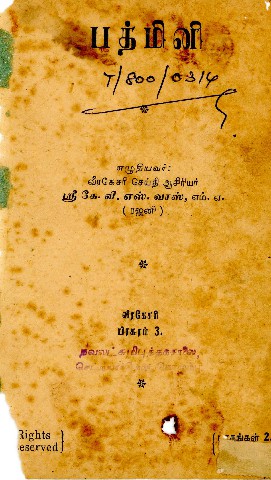 பத்மினி
7/800/0314
எழுதியவர்:
வீரகேசரி செய்தி ஆசிரியர்
ஸ்ரீ கே. வி. எஸ். வாஸ், எம். ஏ.
(ரஜனி)
வீரகேசரி
பிரசுரம் 3.
Rights
eserved